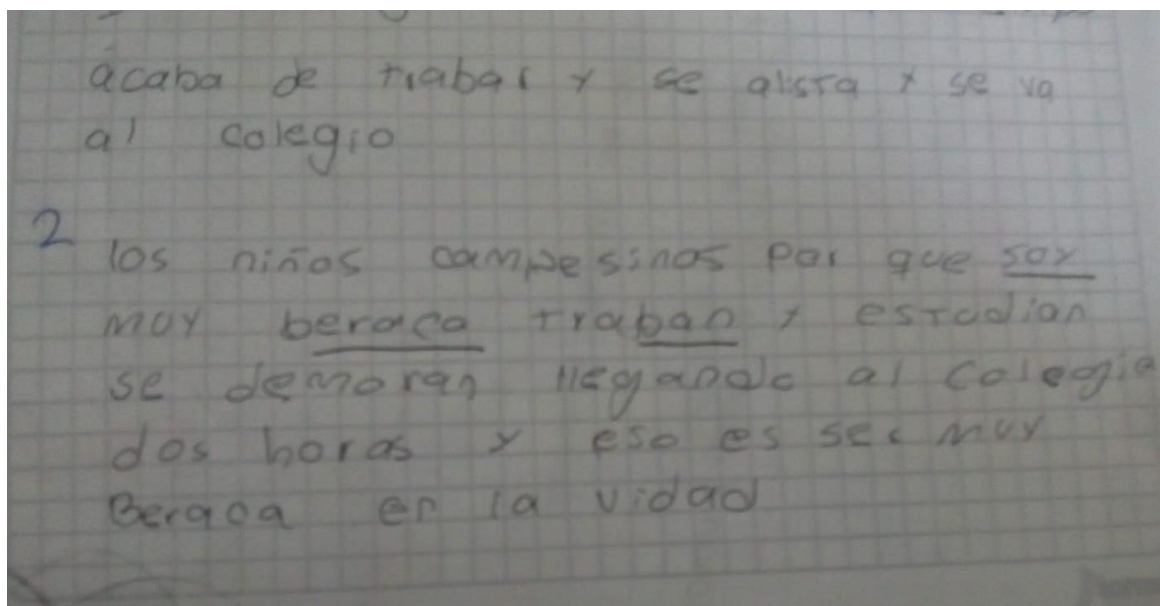 acaba de trabar y se alista y se va
al colegio
2 los niños campesinos por que soy
muy beraca traban y estudian
se demoran llegando al colegio
dos horas y eso es ser muy
Beraca en la vidad